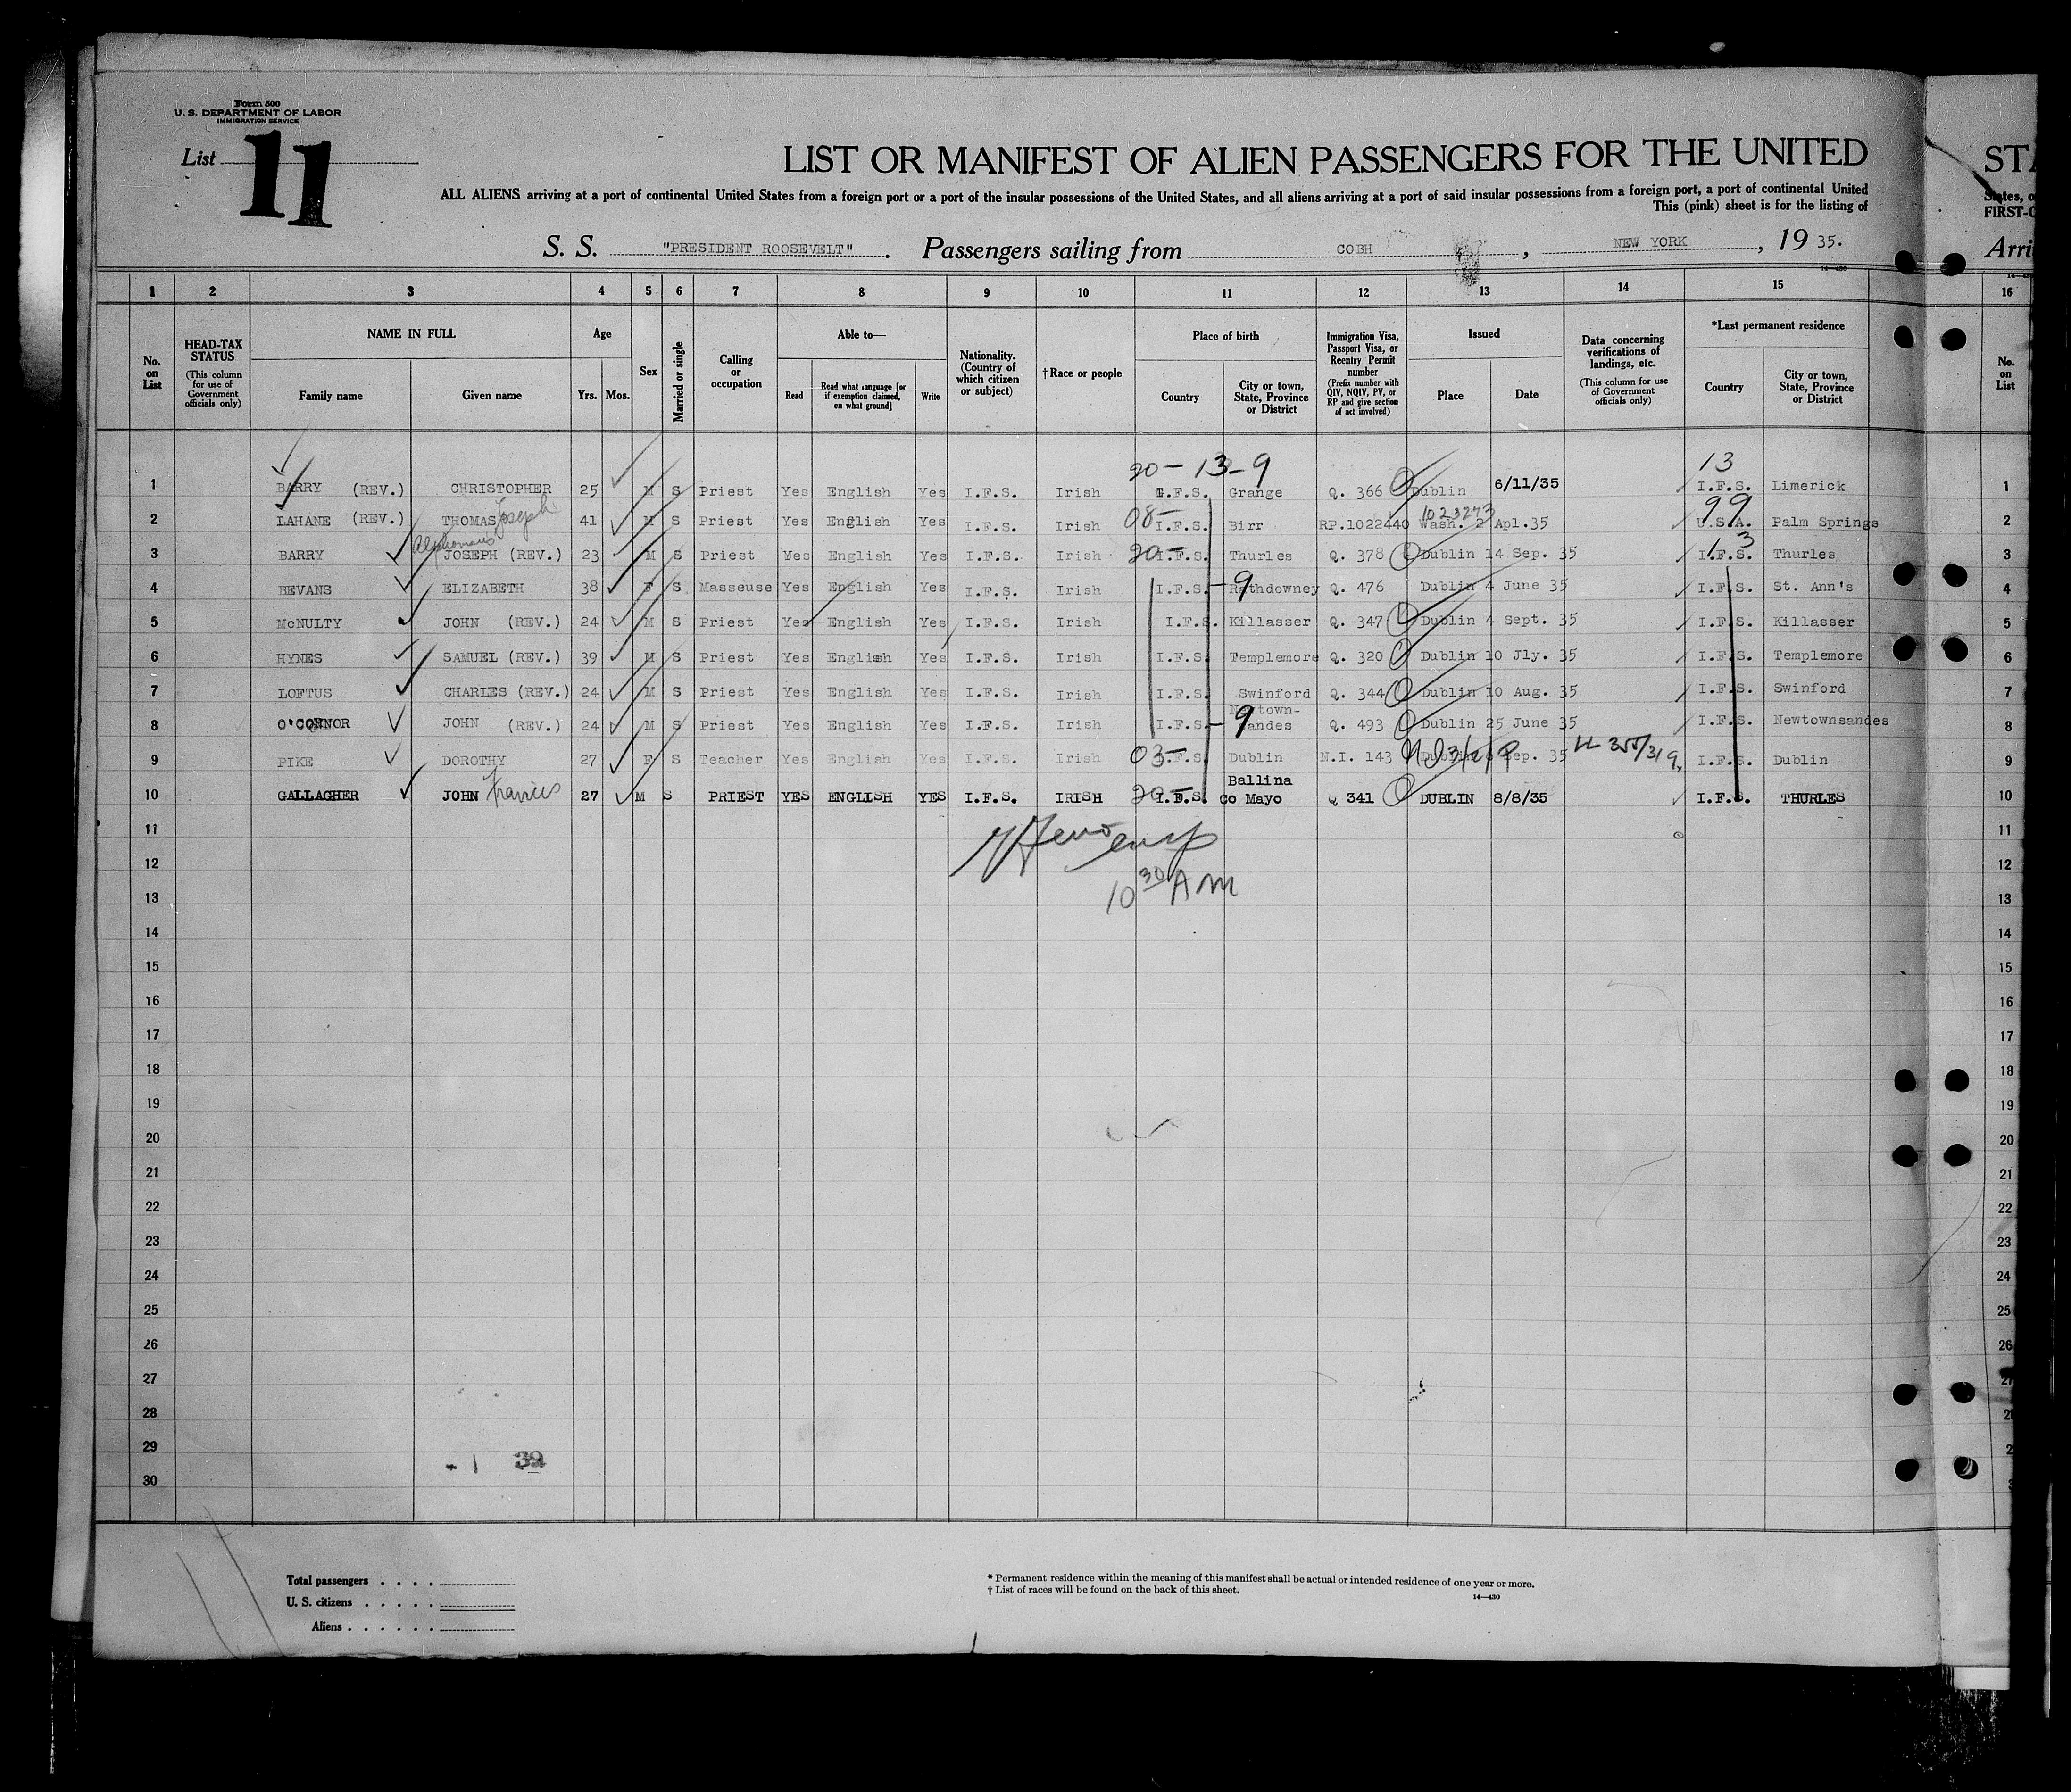 Form 500
U. S. DEPARTMENT OF LABOR
IMMIGRATION SERVICE
List 11
LIST OR MANIFEST OF ALIEN PASSENGERS FOR THE UNITED
ALL ALIENS arriving at a port of continental United States from a foreign port or a port of the insular possessions of the United States, and all aliens arriving at a port of said insular possessions from a foreign port, a port of continental United
This (pink) sheet is for the listing of
S. S. "PRESIDENT ROOSEVELT". Passengers sailing from COBH, NEW YORK, 19 35.
14—430
1 2 3 4 5 6 7 8 9 10 11 12 13 14 15 16
No. on List
HEAD-TAX STATUS (This column for use of Government officials only)
NAME IN FULL Family name Given name
Age Yrs. Mos.
Sex
Married or single
Calling or occupation
Able to— Read Read what language [or if exemption claimed, on what ground] Write
Nationality. (Country of which citizen or subject)
†Race or people
Place of birth Country City or town, State, Province or District
Immigration Visa, Passport Visa, or Reentry Permit number (Prefix number with QIV, NQIV, PV, or RP and give section of act involved)
Issued Place Date
Data concerning verifications of landings, etc. (This column for use of Government officials only)
*Last permanent residence Country City or town, State, Province or District
No. on List
20— 13—9 13
1 BARRY (REV.) CHRISTOPHER 25 M S Priest Yes English Yes I.F.S. Irish I.F.S. Grange Q. 366 Dublin 6/11/35 I.F.S. Limerick 1
1023273 99
2 LAHANE (REV.) THOMAS Joseph 41 M S Priest Yes English Yes I.F.S. Irish 08— I.F.S. Birr RP.1022440 Wash. 2 Apl.35 U.S.A. Palm Springs 2
3 BARRY JOSEPH (REV.) 23 M S Priest Yes English Yes I.F.S. Irish 20— I.F.S. Thurles Q. 378 Dublin 14 Sep. 35 13 I.F.S. Thurles 3
4 BEVANS ELIZABETH 38 F S Masseuse Yes English Yes I.F.S. Irish I.F.S. —9 Rathdowney Q. 476 Dublin 4 June 35 I.F.S. St. Ann's 4
5 McNULTY JOHN (REV.) 24 M S Priest Yes English Yes I.F.S. Irish I.F.S. Killasser Q. 347 Dublin 4 Sept. 35 I.F.S. Killasser 5
6 HYNES SAMUEL (REV.) 39 M S Priest Yes English Yes I.F.S. Irish I.F.S. Templemore Q. 320 Dublin 10 Jly. 35 I.F.S. Templemore 6
7 LOFTUS CHARLES (REV.) 24 M S Priest Yes English Yes I.F.S. Irish I.F.S. Swinford Q. 344 Dublin 10 Aug. 35 I.F.S. Swinford 7
8 O'CONNOR JOHN (REV.) 24 M S Priest Yes English Yes I.F.S. Irish I.F.S. —9 Newtown-sandes Q. 493 Dublin 25 June 35 I.F.S. Newtownsandes 8
9 PIKE DOROTHY 27 F S Teacher Yes English Yes I.F.S. Irish 03— I.F.S. Dublin N.I. 143 Dublin Sep. 35 I.F.S. Dublin 9
10 GALLAGHER JOHN Francis 27 M S PRIEST YES ENGLISH YES I.F.S. IRISH 20— I.F.S. Ballina Co Mayo Q 341 DUBLIN 8/8/35 I.F.S. THURLES 10
11 11
12 12
10 30 AM
13 13
14 14
15 15
16 16
17 17
18 18
19 19
20 20
21 21
22 22
23 23
24 24
25 25
26 26
27
28
29
30
Total passengers . . . .
U. S. citizens . . . . .
Aliens . . . . . .
* Permanent residence within the meaning of this manifest shall be actual or intended residence of one year or more.
† List of races will be found on the back of this sheet.
14—430